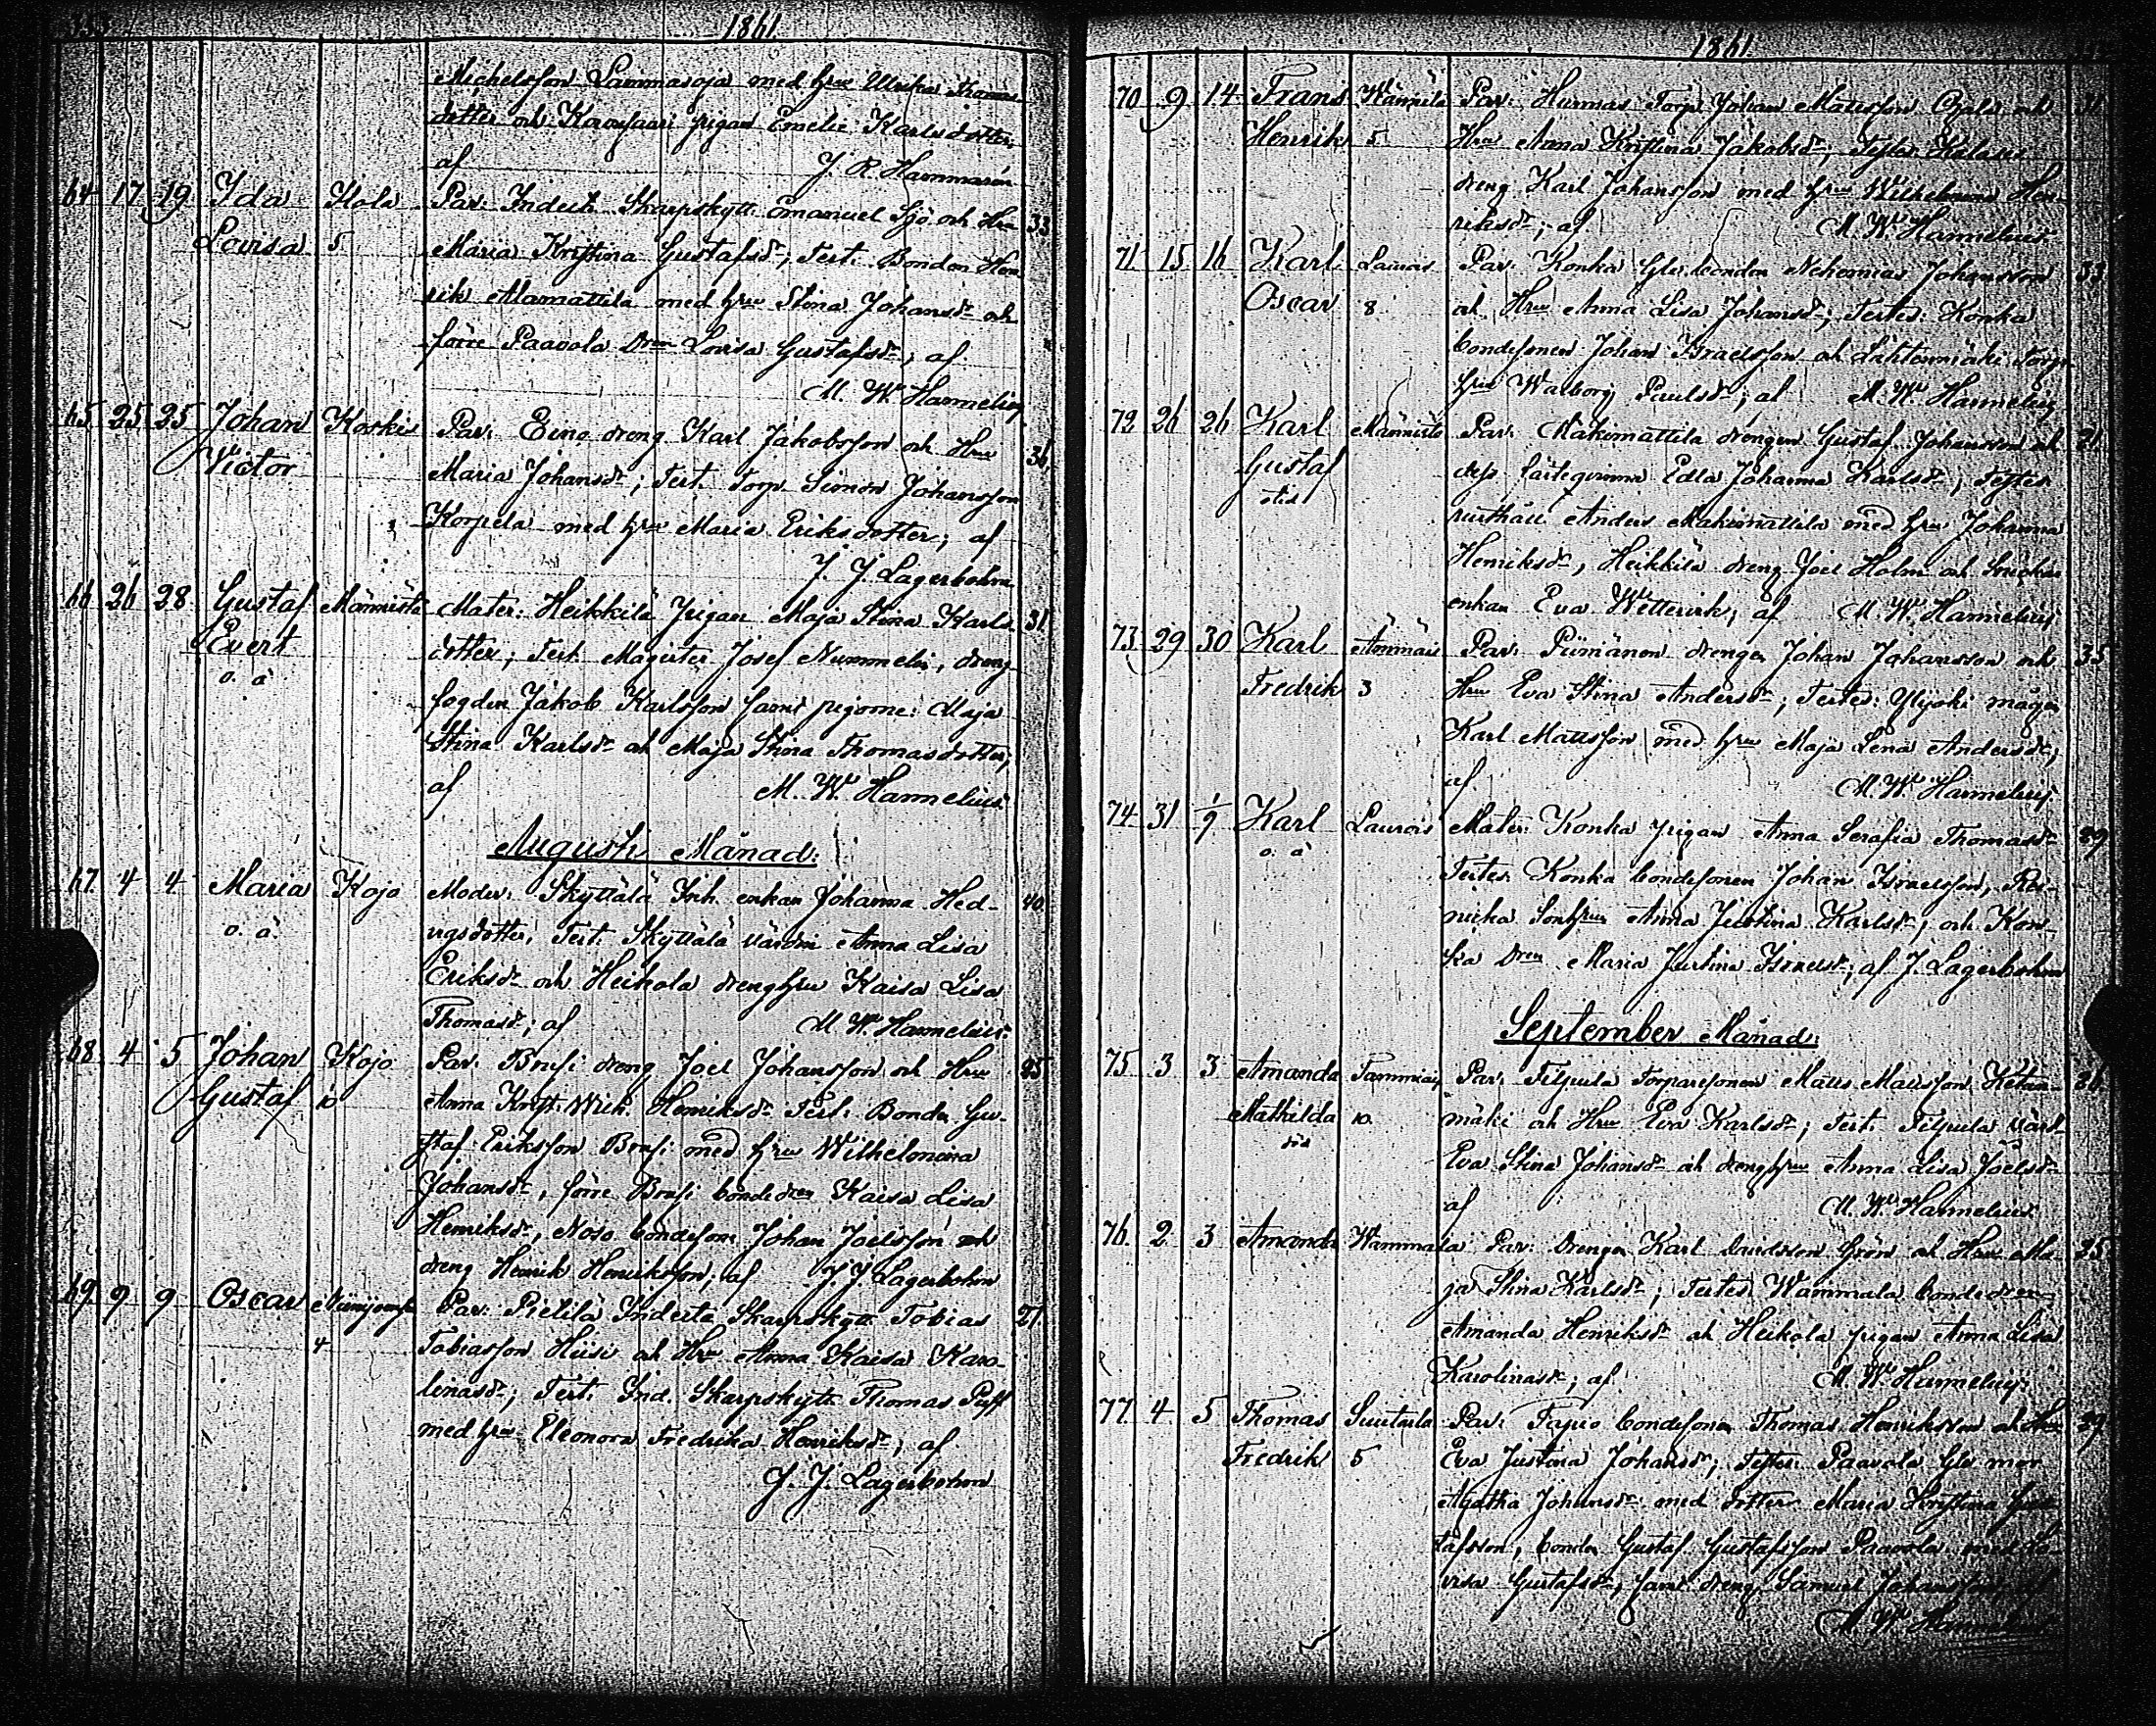 1861
Michelsson Sammasoja med hru Ulrika Thomas-
dotter och Korvusaari pigan Emelie Karlsdotter;
af J. R. Hammarén
64 17 19 Ida Stola Par: Indelta Skarpskytt. Emanuel Sjö och Hru 33
Lovisa 5 Maria Kristina Gustafsdr; Test: Bonden Hen-
rik Alamattila med hru Stina Johansdr och
förre Paavola Dren Lovisa Gustafsdr; af
M. W. Hannelius
65 25 25 Johan Koskis Par: Eino dreng Karl Jakobsson och Hru 36
Victor Maria Johansdr; Test: Torp. Simon Johansson
Korpela med hru Maria Eriksdotter; af
J. J. Lagerbohm
66 26 28 Gustaf Männistö Mater: Heikkilä Pigan Maja Stina Karls- 31
Evert dotter; Test: Magister Josef Nummelin, dreng-
o. ä fogden Jakob Karlsson samt pigorne: Maja
Stina Karlsdr och Maja Stina Thomasdotter;
af M. W. Hannelius
Augusti Månad:
67 4 4 Maria Kojo Moder: Skyttälä Inh. enkan Johanna Hed- 40
o. ä. vigsdotter; Test: Skyttälä värdin Anna Lisa
Eriksdr och Heikola drenghru Kaisa Lisa
Thomasdr; af M. W. Hannelius
68 4 5 Johan Kojo Par: Brusi dreng Joel Johansson och Hru 25
Gustaf 10 Anna Krist. Wilh. Henriksdr Test: Bonden Gu-
staf Eriksson Brusi med hru Wilhelmina
Johansdr, förre Brusi bondedren Kaisa Lisa
Henriksdr, Noso bondeson Johan Joelsson och
dreng Henrik Henriksson; af J. J. Lagerbohm
69 9 9 Oscar Par: Pietilä Indelta Skarpskytt Tobias 27
4 Tobiasson Hiisi och Hru Anna Kaisa Karo-
linasdr; Test: Ind. Skarpskytt Thomas Puff
med hru Eleonora Fredrika Henriksdr; af
J. J. Lagerbohm
1861
70 9 14 Frans Wännilä Par: Hurmas Torp. Johan Matsson och
Henrik 5 Hru Anna Kristina Jakobsdr; Testes:
dreng Karl Johansson med hru Wilhelmina Hen-
riksdr; af M. W. Hannelius
71 15 16 Karl Laurois Par: Konka Glr. bonden Nehemias Johansson 33
Oscar 8 och Hru Anna Lisa Johansdr; Testes: Konka
bondesonen Johan Israelsson och Lähtenmäki Torp.
hru Walborg Paulsdr; af M. W. Hannelius
72 26 26 Karl Männistö Par: Mäkimattila drengen Gustaf Johansson och 21
Gustaf Edla Johanna Karlsdr; Testes:
Anders Mäkimattila med hru Johanna
Henriksdr, Heikkilä dreng Joel Holm och
enkan Eva Wettervik; af M. W. Hannelius
73 29 30 Karl Ämmäis Par: Piimänen drengen Johan Johansson och 35
Fredrik 3 Hru Eva Stina Andersdr; Testes: Ylijoki mågen
Karl Mattsson med hru Maja Lena Andersdr;
af M. W. Hannelius
74 31 1/9 Karl Laurois Mater: Konka pigan Anna Serafia Thomasdr 29
o. ä Testes: Konka bondesonen Johan Israelsson,
Sonhru Anna Justina Karlsdr, och Kon-
ka Dren Maria Justina Israelsdr; af J. Lagerbohm
September Månad:
75 3 3 Amanda Tammiais Par: Filpula Torparesonen Matts Mattsson Ketun- 26
Mathilda 10 mäki och Hru Eva Karlsdr; Test: Filpula värd.
Eva Stina Johansdr och drenghru Anna Lisa Joelsdr
af M. W. Hannelius
76 2 3 Amanda Wammala Par: Drengen Karl Davidsson Grön och Hru Ma- 25
ja Stina Karlsdr; Testes: Wammala bondedren
Amanda Henriksdr och Heikola pigan Anna Lisa
Karolinasdr; af M. W. Hannelius
77 4 5 Thomas Suutarla Par: Tapio bondesonen Thomas Henriksson och Hru 29
Fredrik 5 Eva Justina Johansdr; Testes: Paavola Glr mor
Agatha Johansdr med dotter Maria Kristina Gus-
tafsson, bonden Gustaf Gustafsson Paavola med Lo-
visa Gustafsdr, samt dreng Samuel Johansson;
M. W. Hannelius